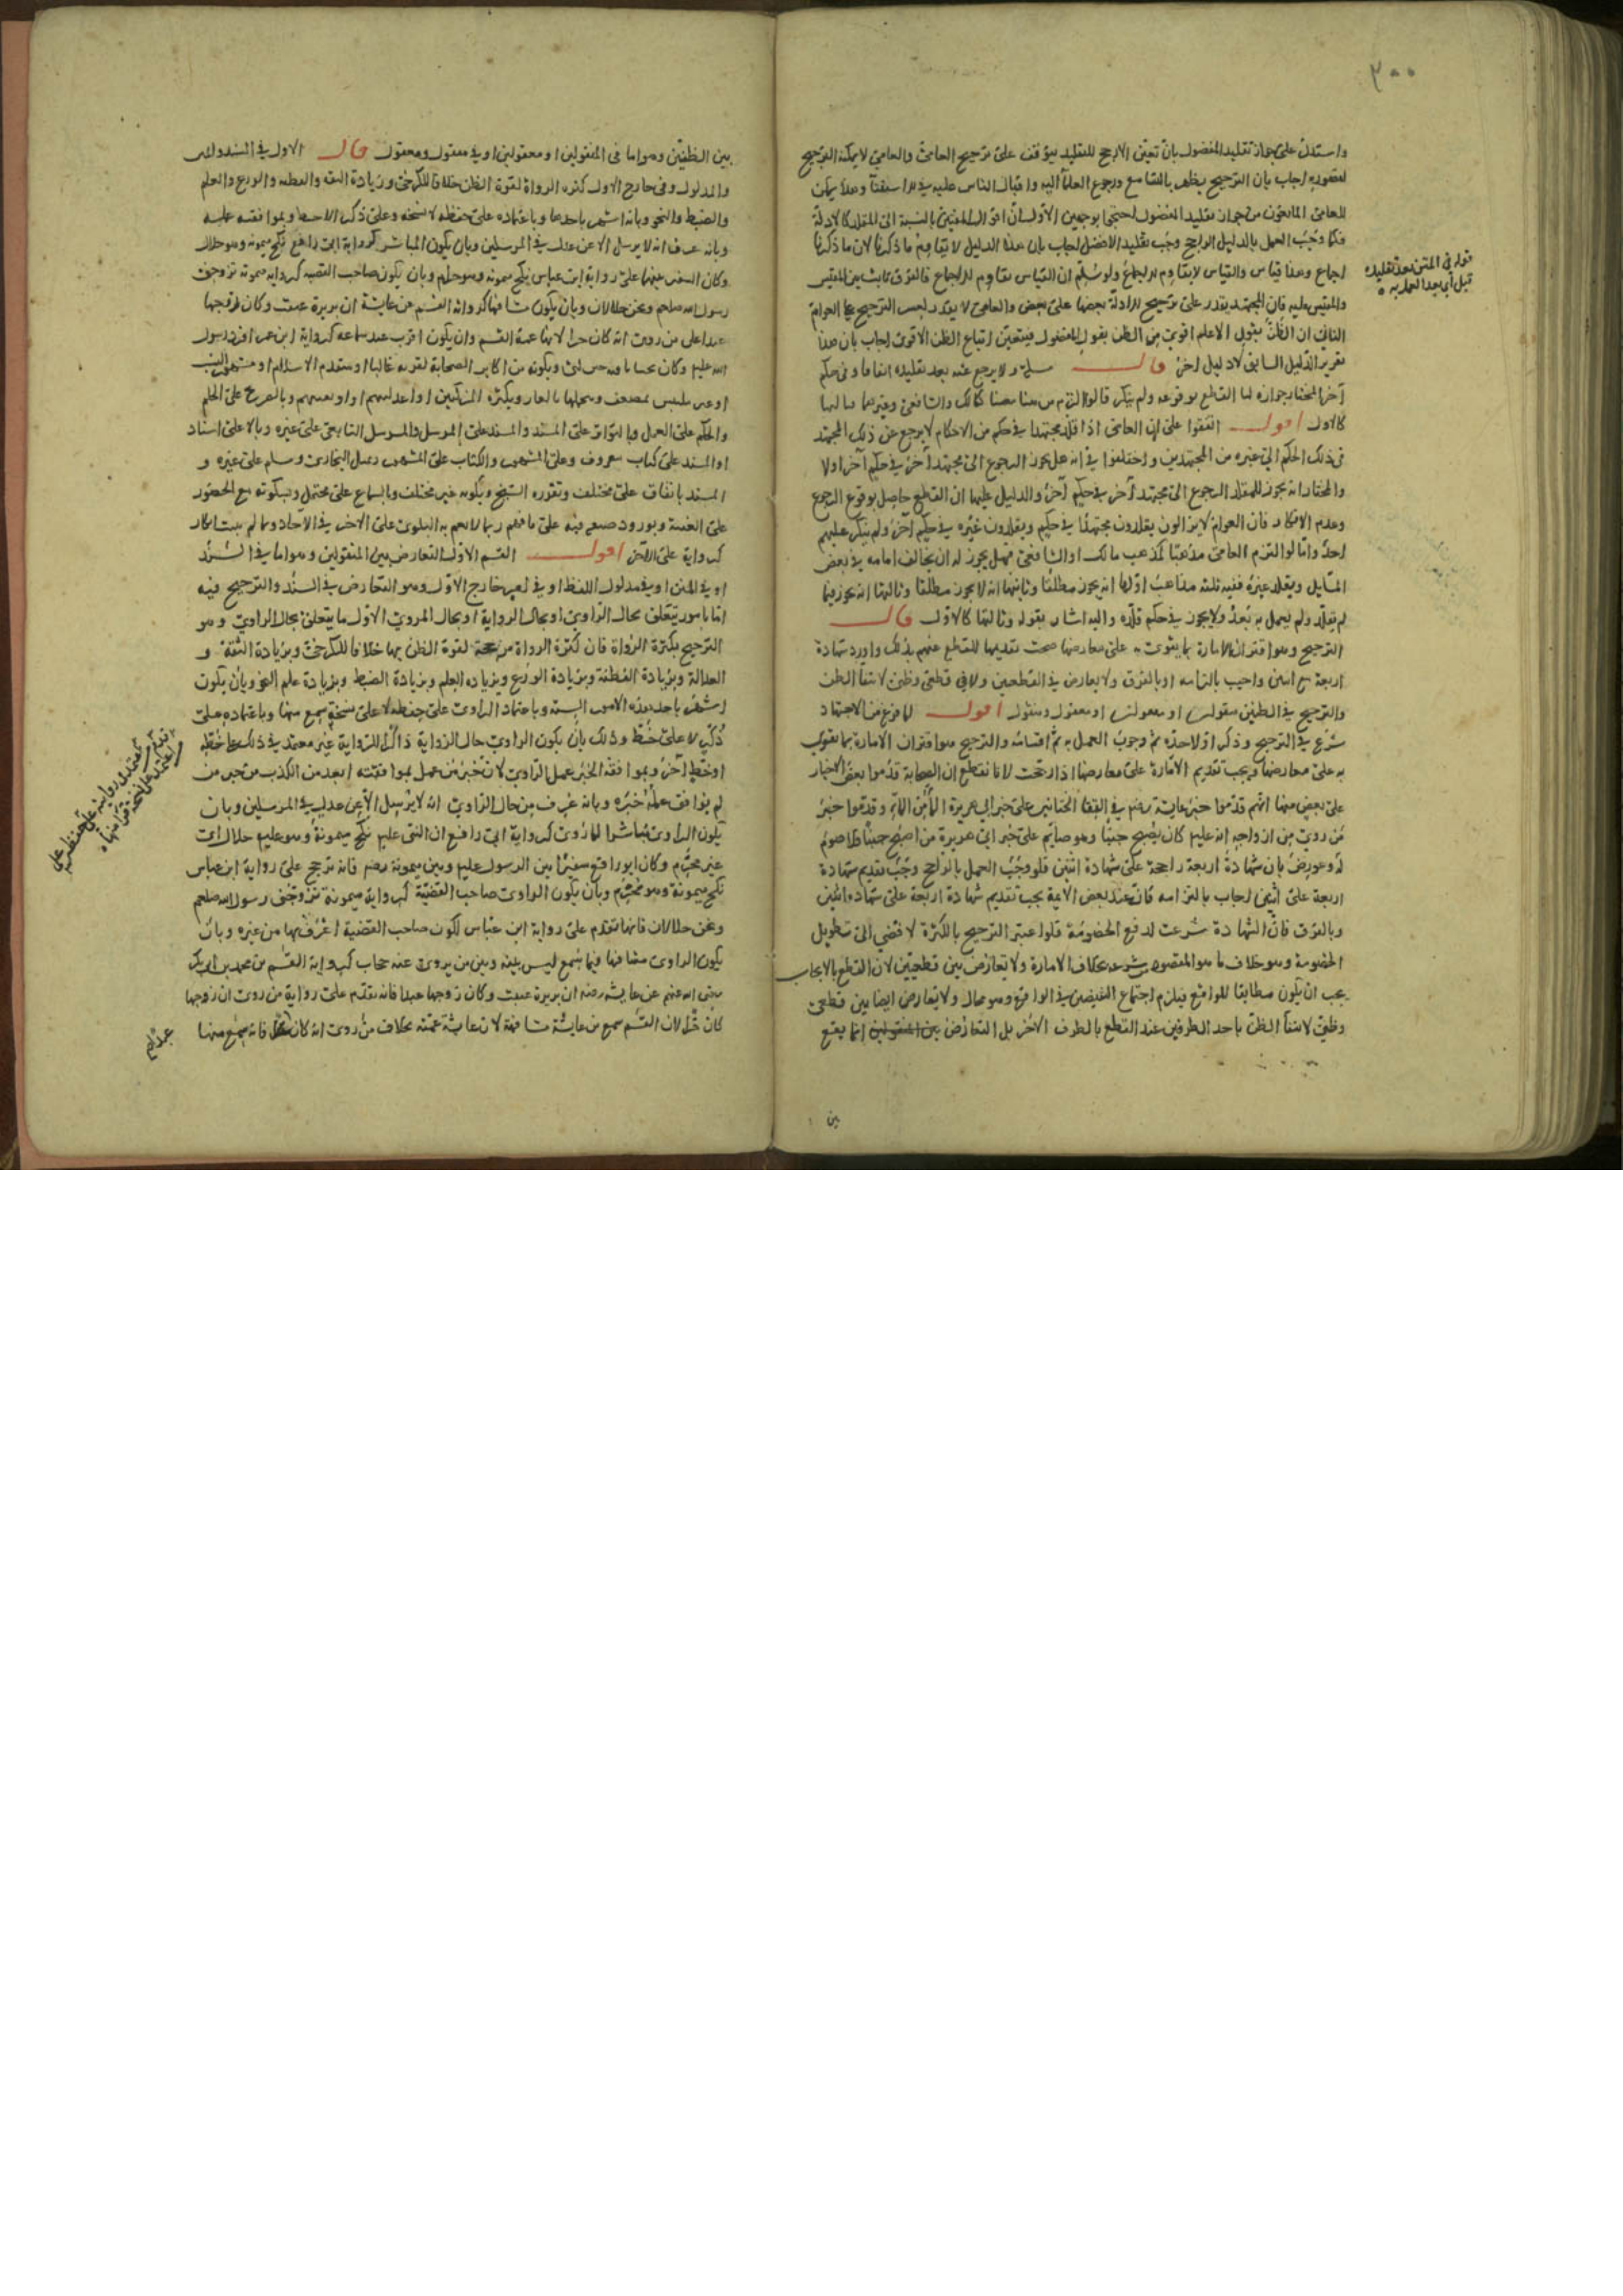 ٣٠٠
واستدل على جواز تقليد المفضول بان تعين الارجح للتقليد يتوقف على ترجيح العامي والعامي لا يمكنه الترجيح
لقصوره اجاب بان الترجيح يظهر بالتسامع ورجوع العلماء اليه واقبال الناس عليه
للعامي المانعون من جواز تقليد المفضول احتجوا بوجهين الاول ان اقوال المفتين بالنسبة الى المقلد كالادلة
فكما وجب العمل بالدليل الراجح وجب تقليد الافضل اجاب بان هذا الدليل لا يقاوم ما ذكرنا لان ما ذكرنا
اجماع وهذا قياس والقياس لا يقاوم الاجماع ولو سلم ان القياس يقاوم الاجماع فالفرق ثابت بين المقيس
والمقيس عليه فان المجتهد يقدر على ترجيح الادلة بعضها على بعض والعامي لا يقدر
الثاني ان الظن بقول الاعلم اقوى من الظن بقول المفضول فيتعين اتباع الظن الاقوى اجاب بان هذا
تقرير الدليل السابق لا دليل اخر قال مسئلة ولا يرجع عنه بعد تقليده اتفاقا وفي حكم
آخر المختار جوازه لنا القطع بوقوعه ولم ينكر كمالك والشافعي وغيرهما ثالثها
كالاول اقول اتفقوا على ان العامي اذا قلد مجتهدا في حكم من الاحكام لا يرجع عن ذلك المجتهد
في ذلك الحكم الى غيره من المجتهدين واختلفوا في انه هل يجوز الرجوع الى مجتهد آخر في حكم آخر او لا
والمختار انه يجوز للمقلد الرجوع الى مجتهد آخر في حكم آخر والدليل عليها ان القطع حاصل بوقوع الرجوع
وعدم الانكار فان العوام لا يزالون يقلدون مجتهدا في حكم ويقلدون غيره في حكم آخر ولم ينكر عليهم
احد واما لو التزم العامي مذهبا كمذهب مالك او الشافعي فهل يجوز له ان يخالف امامه في بعض
المسايل ويقلد غيره ففيه ثلثة مذاهب اولها انه يجوز مطلقا وثانيها انه لا يجوز مطلقا وثالثها انه يجوز فيما
لم يقلد ولم يعمل به بعد ولا يجوز في حكم قلده واليه اشار بقوله وثالثها كالاول قال
الترجيح وهو اقتران الامارة بما يقوى به على معارضها فيجب تقديمها للقطع عنهم بذلك واورد شهادة
اربعة مع اثنين واجيب بالتزامه او بالفرق ولا تعارض في القطعيين ولا في قطعي وظني لانتفاء الظن
والترجيح في الظنين منقولين او معقولين او معقول ومنقول اقول لما فرغ من الاجتهاد
شرع في الترجيح وذكر اولا حده ثم وجوب العمل به ثم اقسامه والترجيح هو اقتران الامارة بما يقوى
به على معارضها ويجب تقديم الامارة على معارضها اذا رجحت لانا نقطع ان الصحابة قدموا بعض الاخبار
على بعض منها انهم قدموا خبر عايشة رضها في التقاء الختانين على خبر ابي هريرة الماء من الماء وقدموا خبر
من روى من ازواجه انه عليه كان يصبح جنبا وهو صايم على خبر ابي هريرة من اصبح جنبا فلا صوم
له وعورض بان شهادة اربعة راجحة على شهادة اثنين فلو وجب العمل بالراجح وجب تقديم شهادة
اربعة على اثنين اجاب بالتزامه فان عند بعض الائمة يجب تقديم شهادة اربعة على شهادة اثنين
وبالفرق فان الشهادة شرعت لدفع الخصومة فلو اعتبر الترجيح بالكثرة لافضى الى تطويل
الخصومة وهو خلاف ما هو المقصود بخلاف الامارة ولا تعارض بين قطعيين لان القطع بالايجاب
يجب ان يكون مطابقا للواقع فيلزم اجتماع النقيضين في الواقع وهو محال ولا تعارض ايضا بين قطعي
وظني لانتفاء الظن باحد الطرفين عند القطع بالطرف الاخر بل التعارض انما يقع
بين
قوله في المتن بعد تقليده
قبل اي بعد العمل به
بين الظنيين وهو اما في المنقولين او معقولين او في منقول ومعقول قال الاول في السند والمتن
والمدلول وفي خارج الاول كثرة الرواة لقوة الظن خلافا للكرخي وبزيادة الثقة والفطنة والورع والعلم
والضبط والنحو وبانه اشهر باحدها وباعتماده على حفظه لا نسخته وعلى ذكر لا خط وبموافقته عمله
وبانه عرف انه لا يرسل الا عن عدل في المرسلين وبان يكون المباشر كرواية ابي رافع نكح ميمونة وهو حلال
وكان السفير بينهما على رواية ابن عباس نكح ميمونة وهو محرم وبان يكون صاحب القصة كرواية ميمونة تزوجني
رسول الله صلعم ونحن حلالان وبان يكون مشافها كرواية القسم عن عايشة ان بريرة عتقت وكان زوجها
عبدا على من روى انه كان حرا لانها عمة القسم وان يكون اقرب عند سماعه كرواية ابن عمر افرد رسول
الله عليه وكان تحت ناقته حين لبى وبكونه من اكابر الصحابة لقربه غالبا او متقدم الاسلام او مشهور النسب
او غير ملتبس بمضعف وبتحملها بالغا وبكثرة المزكين او اعدليتهم او اوثقيتهم وبالصريح على الحكم
والحكم على العمل وبالتواتر على المسند والمسند على المرسل والمرسل التابعي على غيره وبالاعلى اسنادا
والمسند على كتاب معروف وعلى المشهور والكتاب على المشهور وبمثل البخاري ومسلم على غيره و
المسند باتفاق على مختلف وبقراءة الشيخ وبكونه غير مختلف وبالسماع على محتمل وبسكوته مع الحضور
على الغيبة وبورود صيغة فيه على ما فهم وبما لا تعم به البلوى على الاخر في الاحاد وبما لم يثبت انكار
لرواية على الآخر اقول القسم الاول التعارض بين المنقولين وهو اما في السند
او في المتن او في مدلول اللفظ او في امر خارج الاول وهو التعارض في السند والترجيح فيه
اما بامور يتعلق بحال الراوي او بحال الرواية او بحال المروي الاول ما يتعلق بحال الراوي وهو
الترجيح بكثرة الرواة فان كثرة الرواة مرجحة لقوة الظن بها خلافا للكرخي وبزيادة الثقة و
العدالة وبزيادة الفطنة وبزيادة الورع وبزيادة العلم وبزيادة الضبط وبزيادة علم النحو وبان يكون
اشهر باحد هذه الامور الستة وباعتماد الراوي على حفظه لا على نسخة سمع منها وباعتماده على
ذكر لا على خط وذلك بان يكون الراوي حال الرواية ذاكرا للرواية غير معتمد في ذلك على خطه
او خط آخر وبموافقة الخبر عمل الراوي لان خبر من عمل بموافقته ابعد من الكذب من خبر من
لم يوافق عمله خبره وبانه عرف من حال الراوي انه لا يرسل الا عن عدل في المرسلين وبان
يكون الراوي مباشرا لما روى كرواية ابي رافع ان النبي عليه نكح ميمونة وهو عليه حلال اي
غير محرم وكان ابو رافع سفيرا بين الرسول عليه وبين ميمونة رضها فانه ترجح على رواية ابن عباس
نكح ميمونة وهو محرم وبان يكون الراوي صاحب القضية كرواية ميمونة تزوجني رسول الله صلعم
ونحن حلالان فانها تقدم على رواية ابن عباس لكون صاحب القضية اعرف بها من غيره وبان
يكون الراوي مشافها فيما سمع ليس بينه وبين من يروى عنه حجاب كرواية القسم بن محمد بن ابي بكر
رضي الله عنهم عن عايشة رضها ان بريرة عتقت وكان زوجها عبدا فانه تقدم على رواية من روى ان زوجها
كان حرا لان القسم سمع من عايشة مشافهة لان عايشة عمته بخلاف من روى انه كان حرا فانه سمع منها